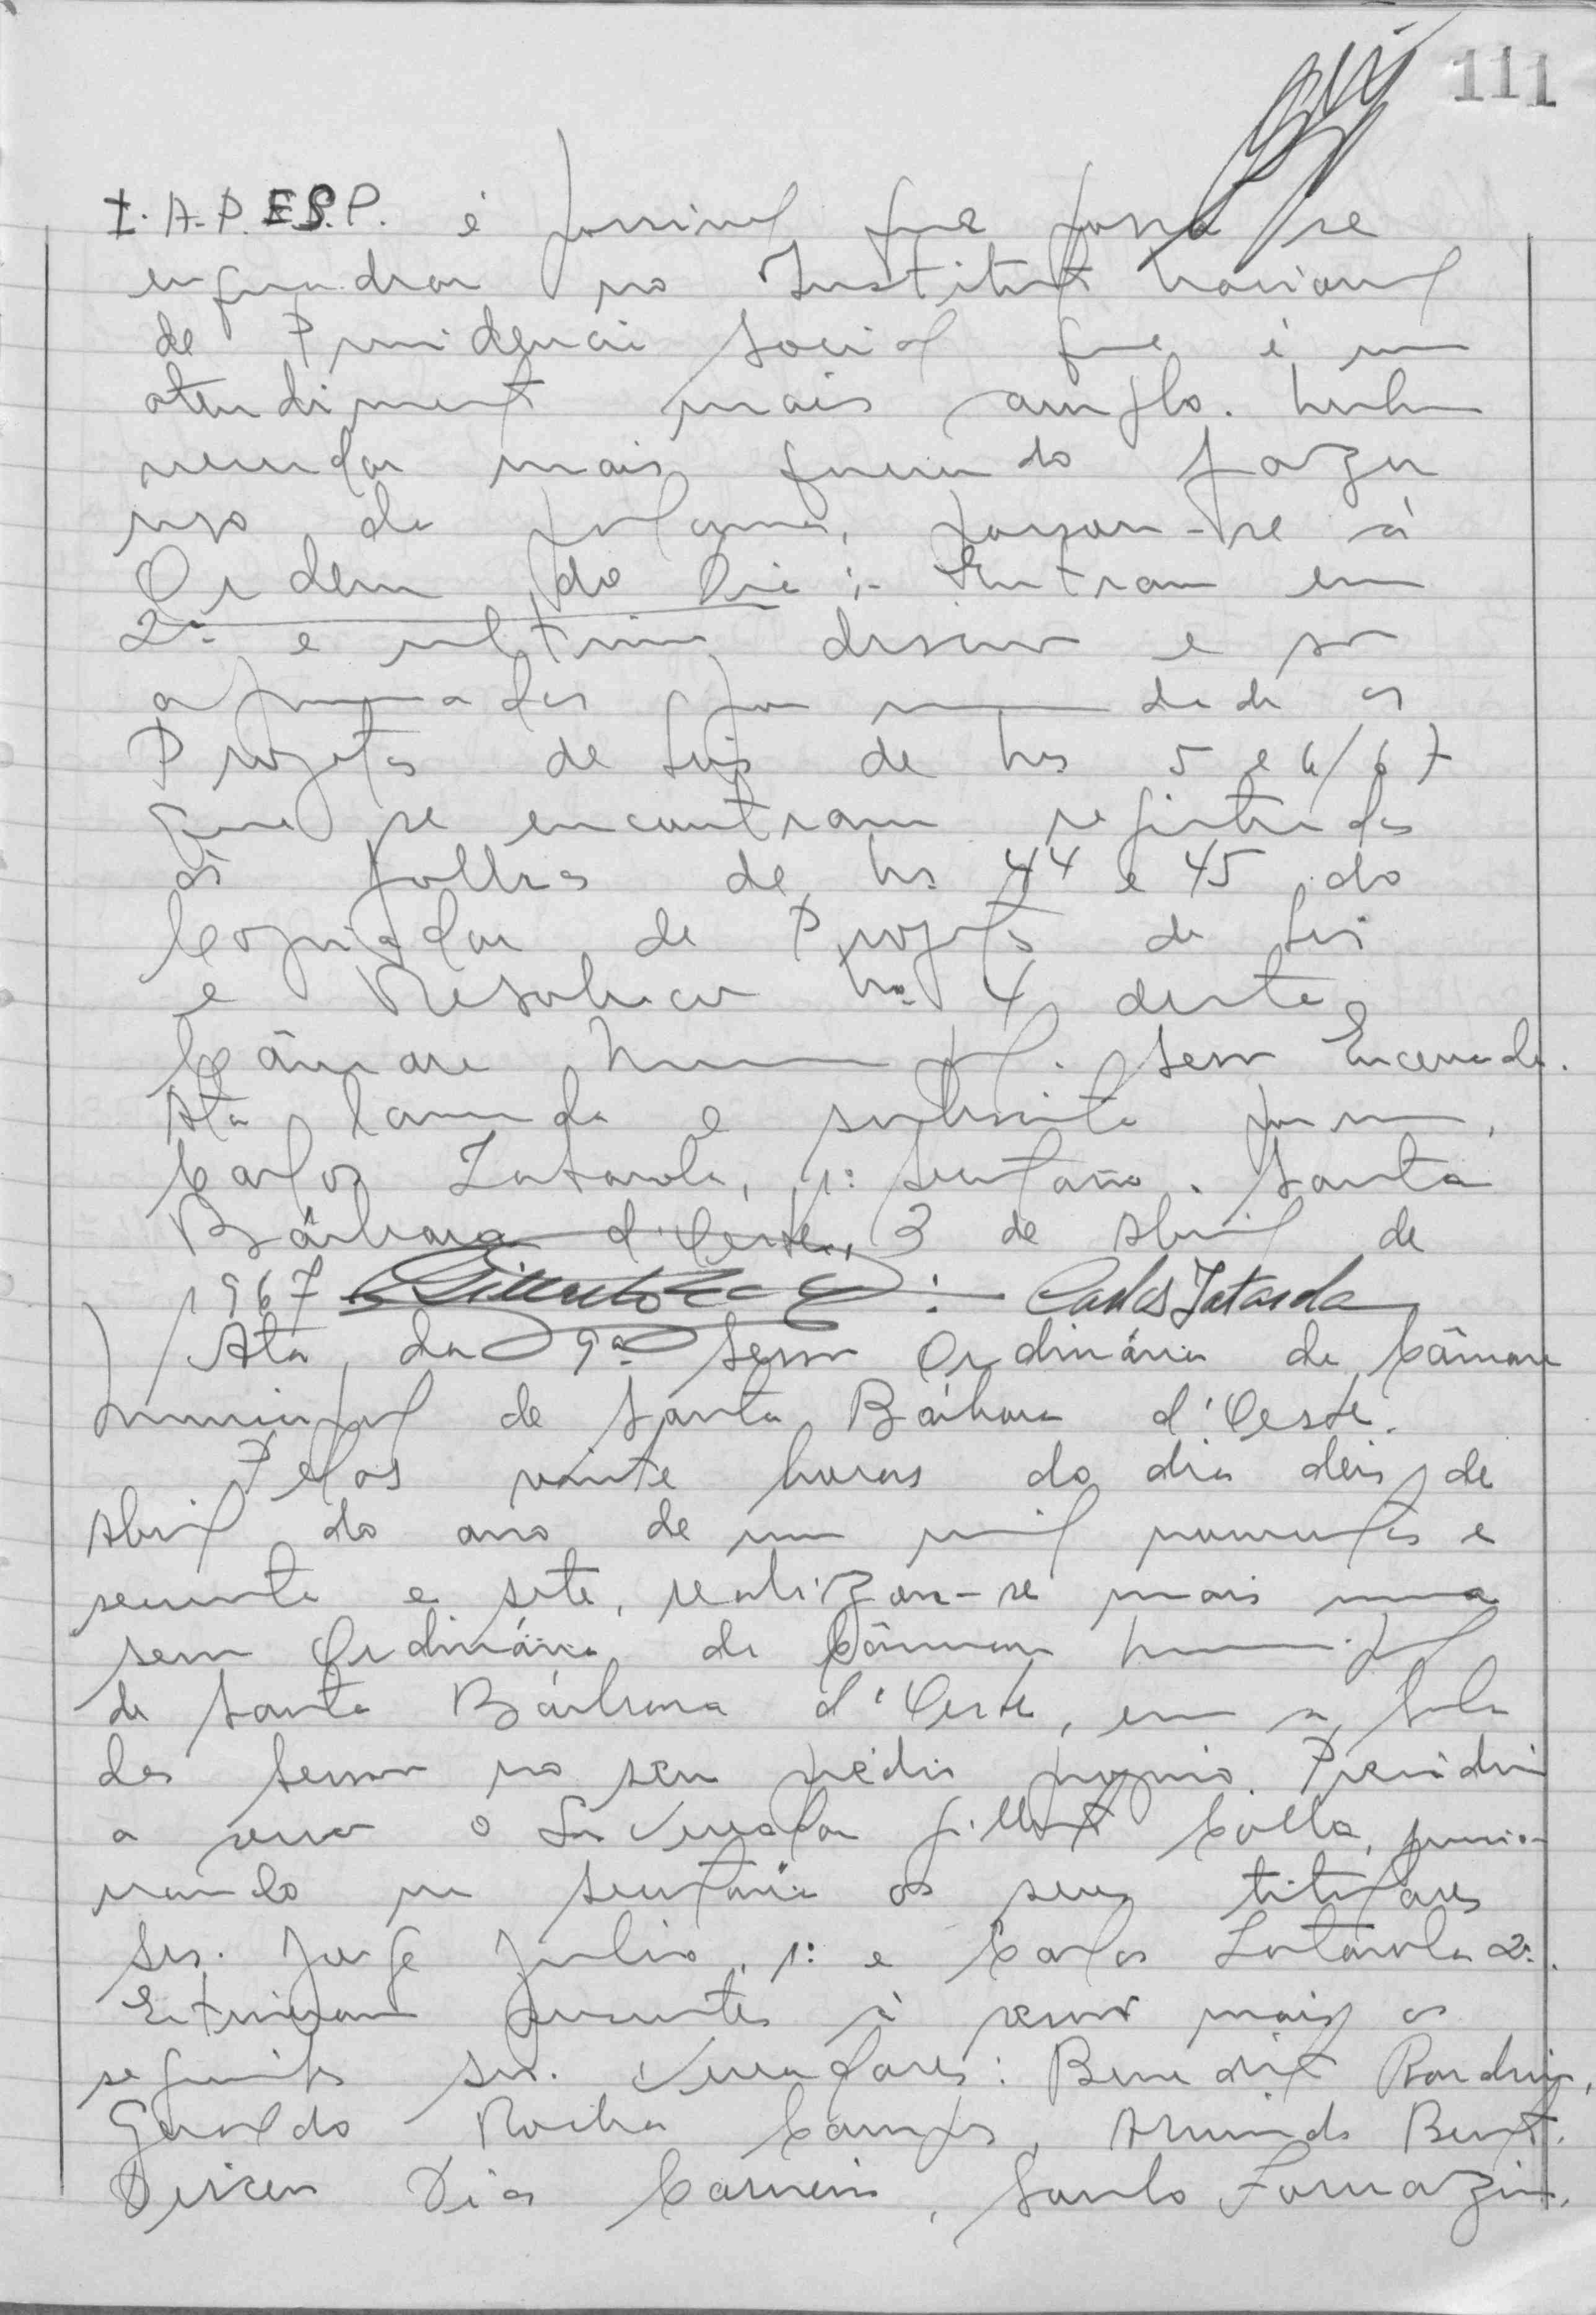 111
I.A.P.E.S.P. é possivel que possa se
enquadrar no Instituto Nacional
de Previdencia Social que é um
atendimento mais amplo. Nenhum
vereador mais querendo fazer
uso da palavra, passou-se à
Ordem do Dia :- Entram em
2ª e ultima discussão e são
aprovados por unanimidade os
Projetos de Leis de nos 5 e 6/67
que se encontram registrados
às folhas de nos 44 e 45 do
Copiador de Projetos de Leis
e Resolucões nº 4 desta
Câmara Municipal. Sessão Encerrada.
Ata lavrada e subscrita por mim,
Carlos Zatarola, 1º Secretário. Santa
Bárbara d'Oeste, 3 de Abril de
1967 Carlos Zatarola
Ata da 9ª Sessão Ordinária da Câmara
Municipal de Santa Bárbara d'Oeste.
Pelas vinte horas do dia deis de
Abril do ano de um mil novecentos e
sessenta e sete, realizou-se mais uma
sessão Ordinária da Câmara Municipal
de Santa Bárbara d'Oeste, em a Sala
das Sessões no seu prédio proprio. Presidiu
a sessão o Sr. Vereador Gilberto Colla, funcio-
nando na secretária os seus titulares
Srs. Jorge Julio, 1º e Carlos Zatarola 2º.
Estiveram presentes à sessão mais os
seguintes srs. Vereadores: Benedito
Geraldo Rocha Campos, Arminds Bento,
Dirceu Dias Carneiro, Santo Fornazin,